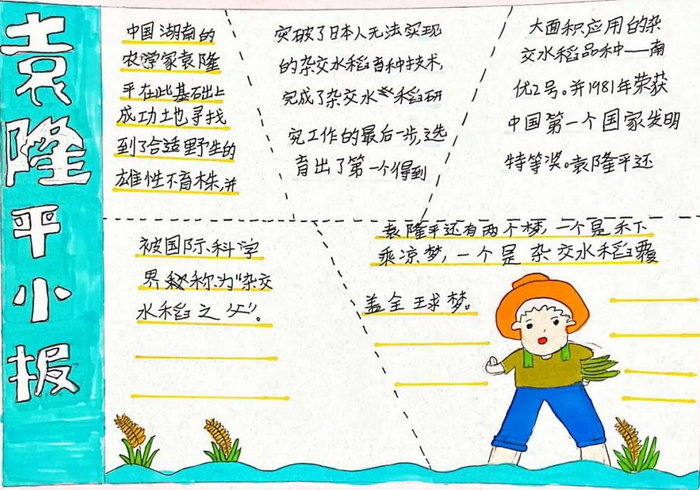 袁隆平小报
中国湖南的
农学家袁隆
平在此基础上
成功土也寻找
到了合适野生的
雄性不育株,并
突破了日本人无法实现
的杂交水稻育种技术,
完成了杂交水稻研
究工作的最后一步,选
育出了第一个得到
大面积应用的杂
交水稻品种——南
优2号。并1981年荣获
中国第一个国家发明
特等奖。袁隆平还
被国际科学
界称为"杂交
水稻之父"。
袁隆平还有两个梦,一个是禾下
乘凉梦,一个是杂交水稻覆
盖全球梦。